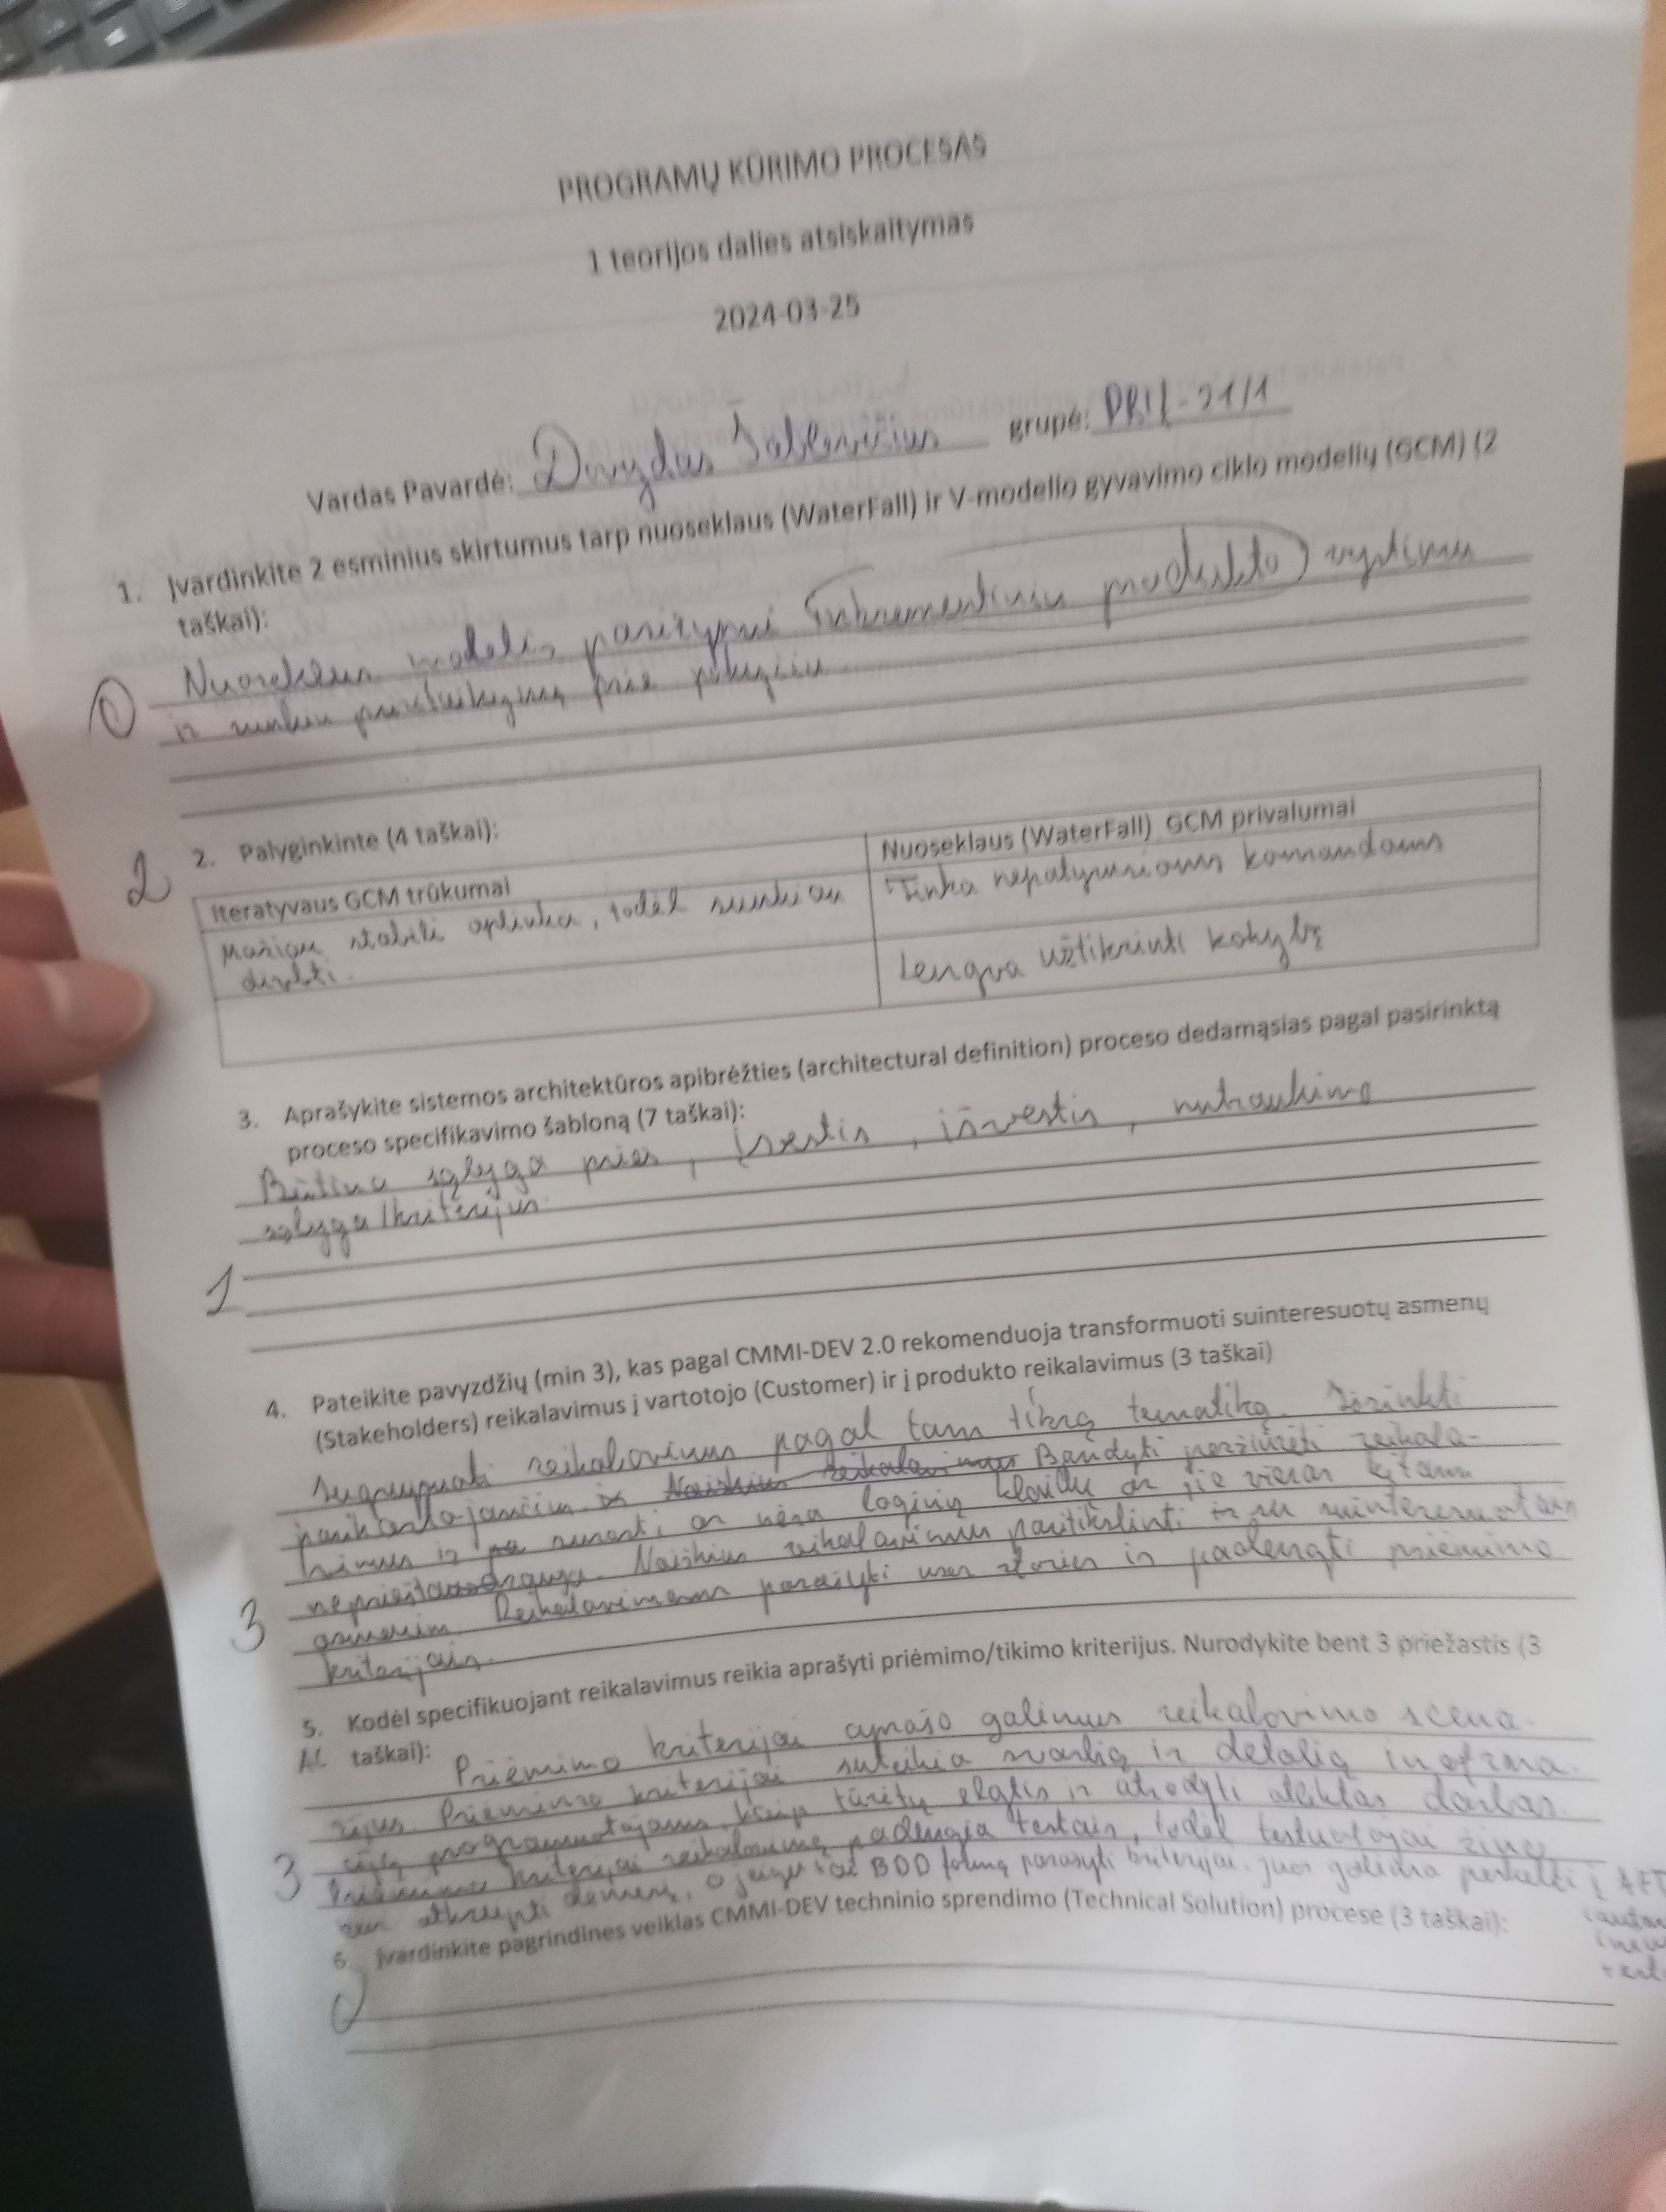 PROGRAMŲ KŪRIMO PROCESAS
1 teorijos dalies atsiskaitymas
2024-03-25
Vardas Pavardė: Dovydas grupė: PRIf-21/1
1. Įvardinkite 2 esminius skirtumus tarp nuoseklaus (WaterFall) ir V-modelio gyvavimo ciklo modelių (GCM) (2
taškai):
Nuoseklus modelis pasižymi inkrementiniu produkto vystimu
0 ir sunkiu prisitaikymu prie pokyčių
2 2. Palyginkinte (4 taškai):
Iteratyvaus GCM trūkumai
Nuoseklaus (WaterFall) GCM privalumai
Mažiau stabili aplinka, todėl sunkiau
dirbti.
Tinka nepatyrusioms komandoms
Lengva užtikrinti kokybę
3. Aprašykite sistemos architektūros apibrėžties (architectural definition) proceso dedamąsias pagal pasirinktą
proceso specifikavimo šabloną (7 taškai):
Būtina sąlyga prieš, įvestis, išvestis, nutraukimo
sąlyga/kriterijus.
1
4. Pateikite pavyzdžių (min 3), kas pagal CMMI-DEV 2.0 rekomenduoja transformuoti suinteresuotų asmenų
(Stakeholders) reikalavimus į vartotojo (Customer) ir į produkto reikalavimus (3 taškai)
Sugrupuoti reikalavimus pagal tam tikrą tematiką. Išrinkti
pasikartojančius ir Neaiškius reikalavimus Bandyti peržiūrėti reikala-
vimus ir surasti, ar nėra loginių klaidų ar jie vienas kitam
neprieštarauja. Neaiškius reikalavimus patikslinti su suinteresuotais
3 asmenim. Reikalavimams parašyti user stories ir padengti priėmimo
kriterijais.
5. Kodėl specifikuojant reikalavimus reikia aprašyti priėmimo/tikimo kriterijus. Nurodykite bent 3 priežastis (3
AC taškai):
Priėmimo kriterijai aprašo galimus reikalavimo scena-
rijus. Priėmimo kriterijai suteikia svarbią ir detalią
programuotojams, kaip turėtų elgtis ir atrodyti atliktas darbas.
3 Priėmimo kriterijai reikalavimą padengia testais, todėl testuotojai žino
atkreipti dėmesį, o jeigu BDD formą parašyti kriterijai, juos galima perkelti į AFT
6. Įvardinkite pagrindines veiklas CMMI-DEV techninio sprendimo (Technical Solution) procese (3 taškai):
0